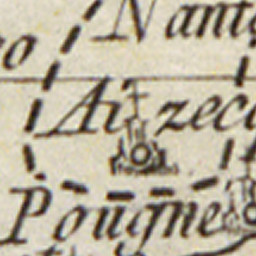 Nant
Aizec
Pougne